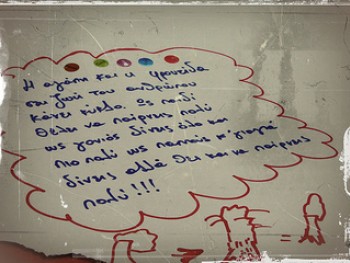 Η αγάπη και η φροντίδα
στη ζωή του ανθρώπου
κάνει κύκλο. Ως παιδί
θέλει να παίρνεις πολύ
ως γονιός δίνεις όλο και
πιο πολύ ως παππούς κ' γιαγιά
δίνεις αλλά θες και να παίρνεις
πολύ!!!